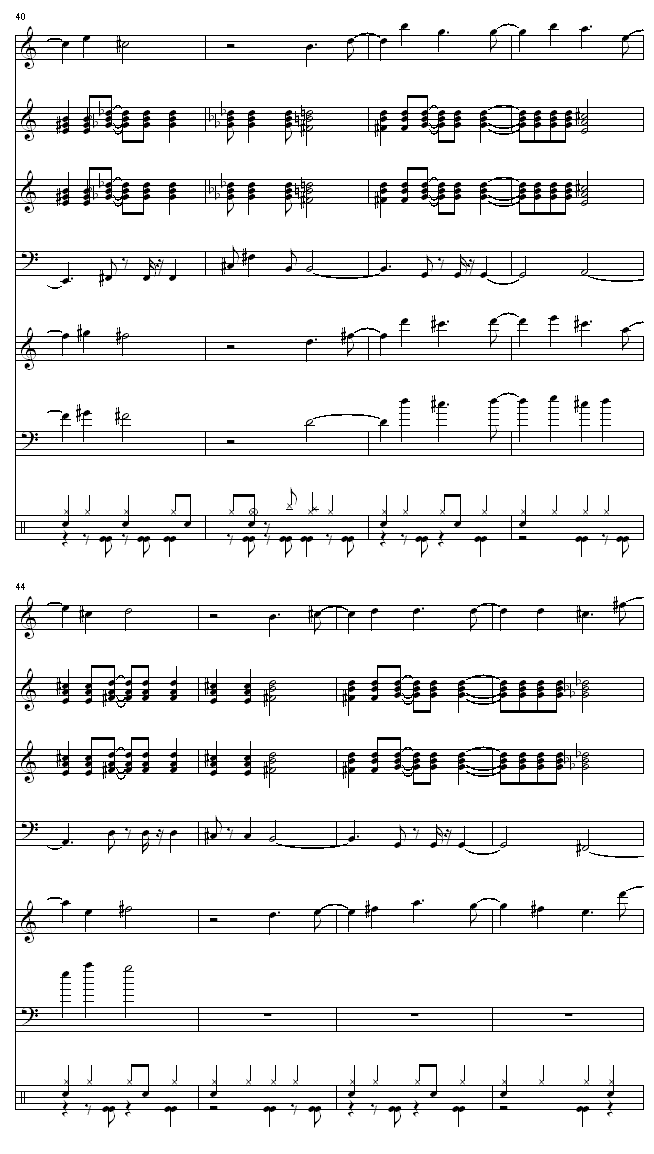 40
44